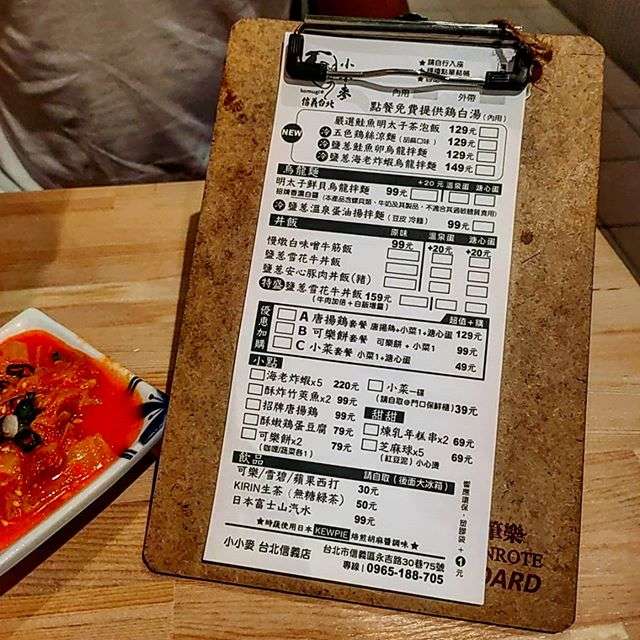 小小麥
komugie
信義台北
★請自行入座
內用
外帶
點餐免費提供鷄白湯(內用)
NEW
嚴選鮭魚明太子茶泡飯 129元
冷 五色鷄絲涼麵(胡麻口味) 149元
冷 鹽蔥鮭魚卵烏龍拌麵 129元
冷 鹽蔥海老炸蝦烏龍拌麵 149元
烏龍麵 +20元 溫泉蛋 溏心蛋
明太子鮮貝烏龍拌麵 99元
招牌香濃白醬(本產品含螺貝類、牛奶及其製品，不適合其過敏體質食用)
冷 鹽蔥溫泉蛋油揚拌麵(豆皮 冷麵) 99元
丼飯 原味 溫泉蛋 溏心蛋
慢燉白味噌牛筋飯 99元 +20元 +20元
鹽蔥雪花牛丼飯
鹽蔥安心豚肉丼飯(豬)
特盛 鹽蔥雪花牛丼飯 159元
(牛肉加倍+白飯增量)
優惠加購 超值+購
A 唐揚鷄套餐 唐揚鷄+小菜1+溏心蛋 129元
B 可樂餅套餐 可樂餅+小菜1 99元
C 小菜套餐 小菜1+溏心蛋 49元
小點
海老炸蝦x5 220元
酥炸竹筴魚x2 99元
招牌唐揚鷄 99元
酥嫩鷄蛋豆腐 79元
可樂餅x2 79元
(咖哩/蔬菜各1)
小菜一碟
(請自取@門口保鮮櫃) 39元
甜甜
煉乳年糕串x2 69元
芝麻球x5 69元
(紅豆泥)小心燙
飲品 請自取(後面大冰箱)
可樂/雪碧/蘋果西打 30元
KIRIN生茶(無糖綠茶) 50元
日本富士山汽水 99元
響應環保，塑膠袋+1元
★時蔬使用日本KEWPIE焙煎胡麻醬調味★
小小麥 台北信義店
台北市信義區永吉路30巷75號
專線 | 0965-188-705